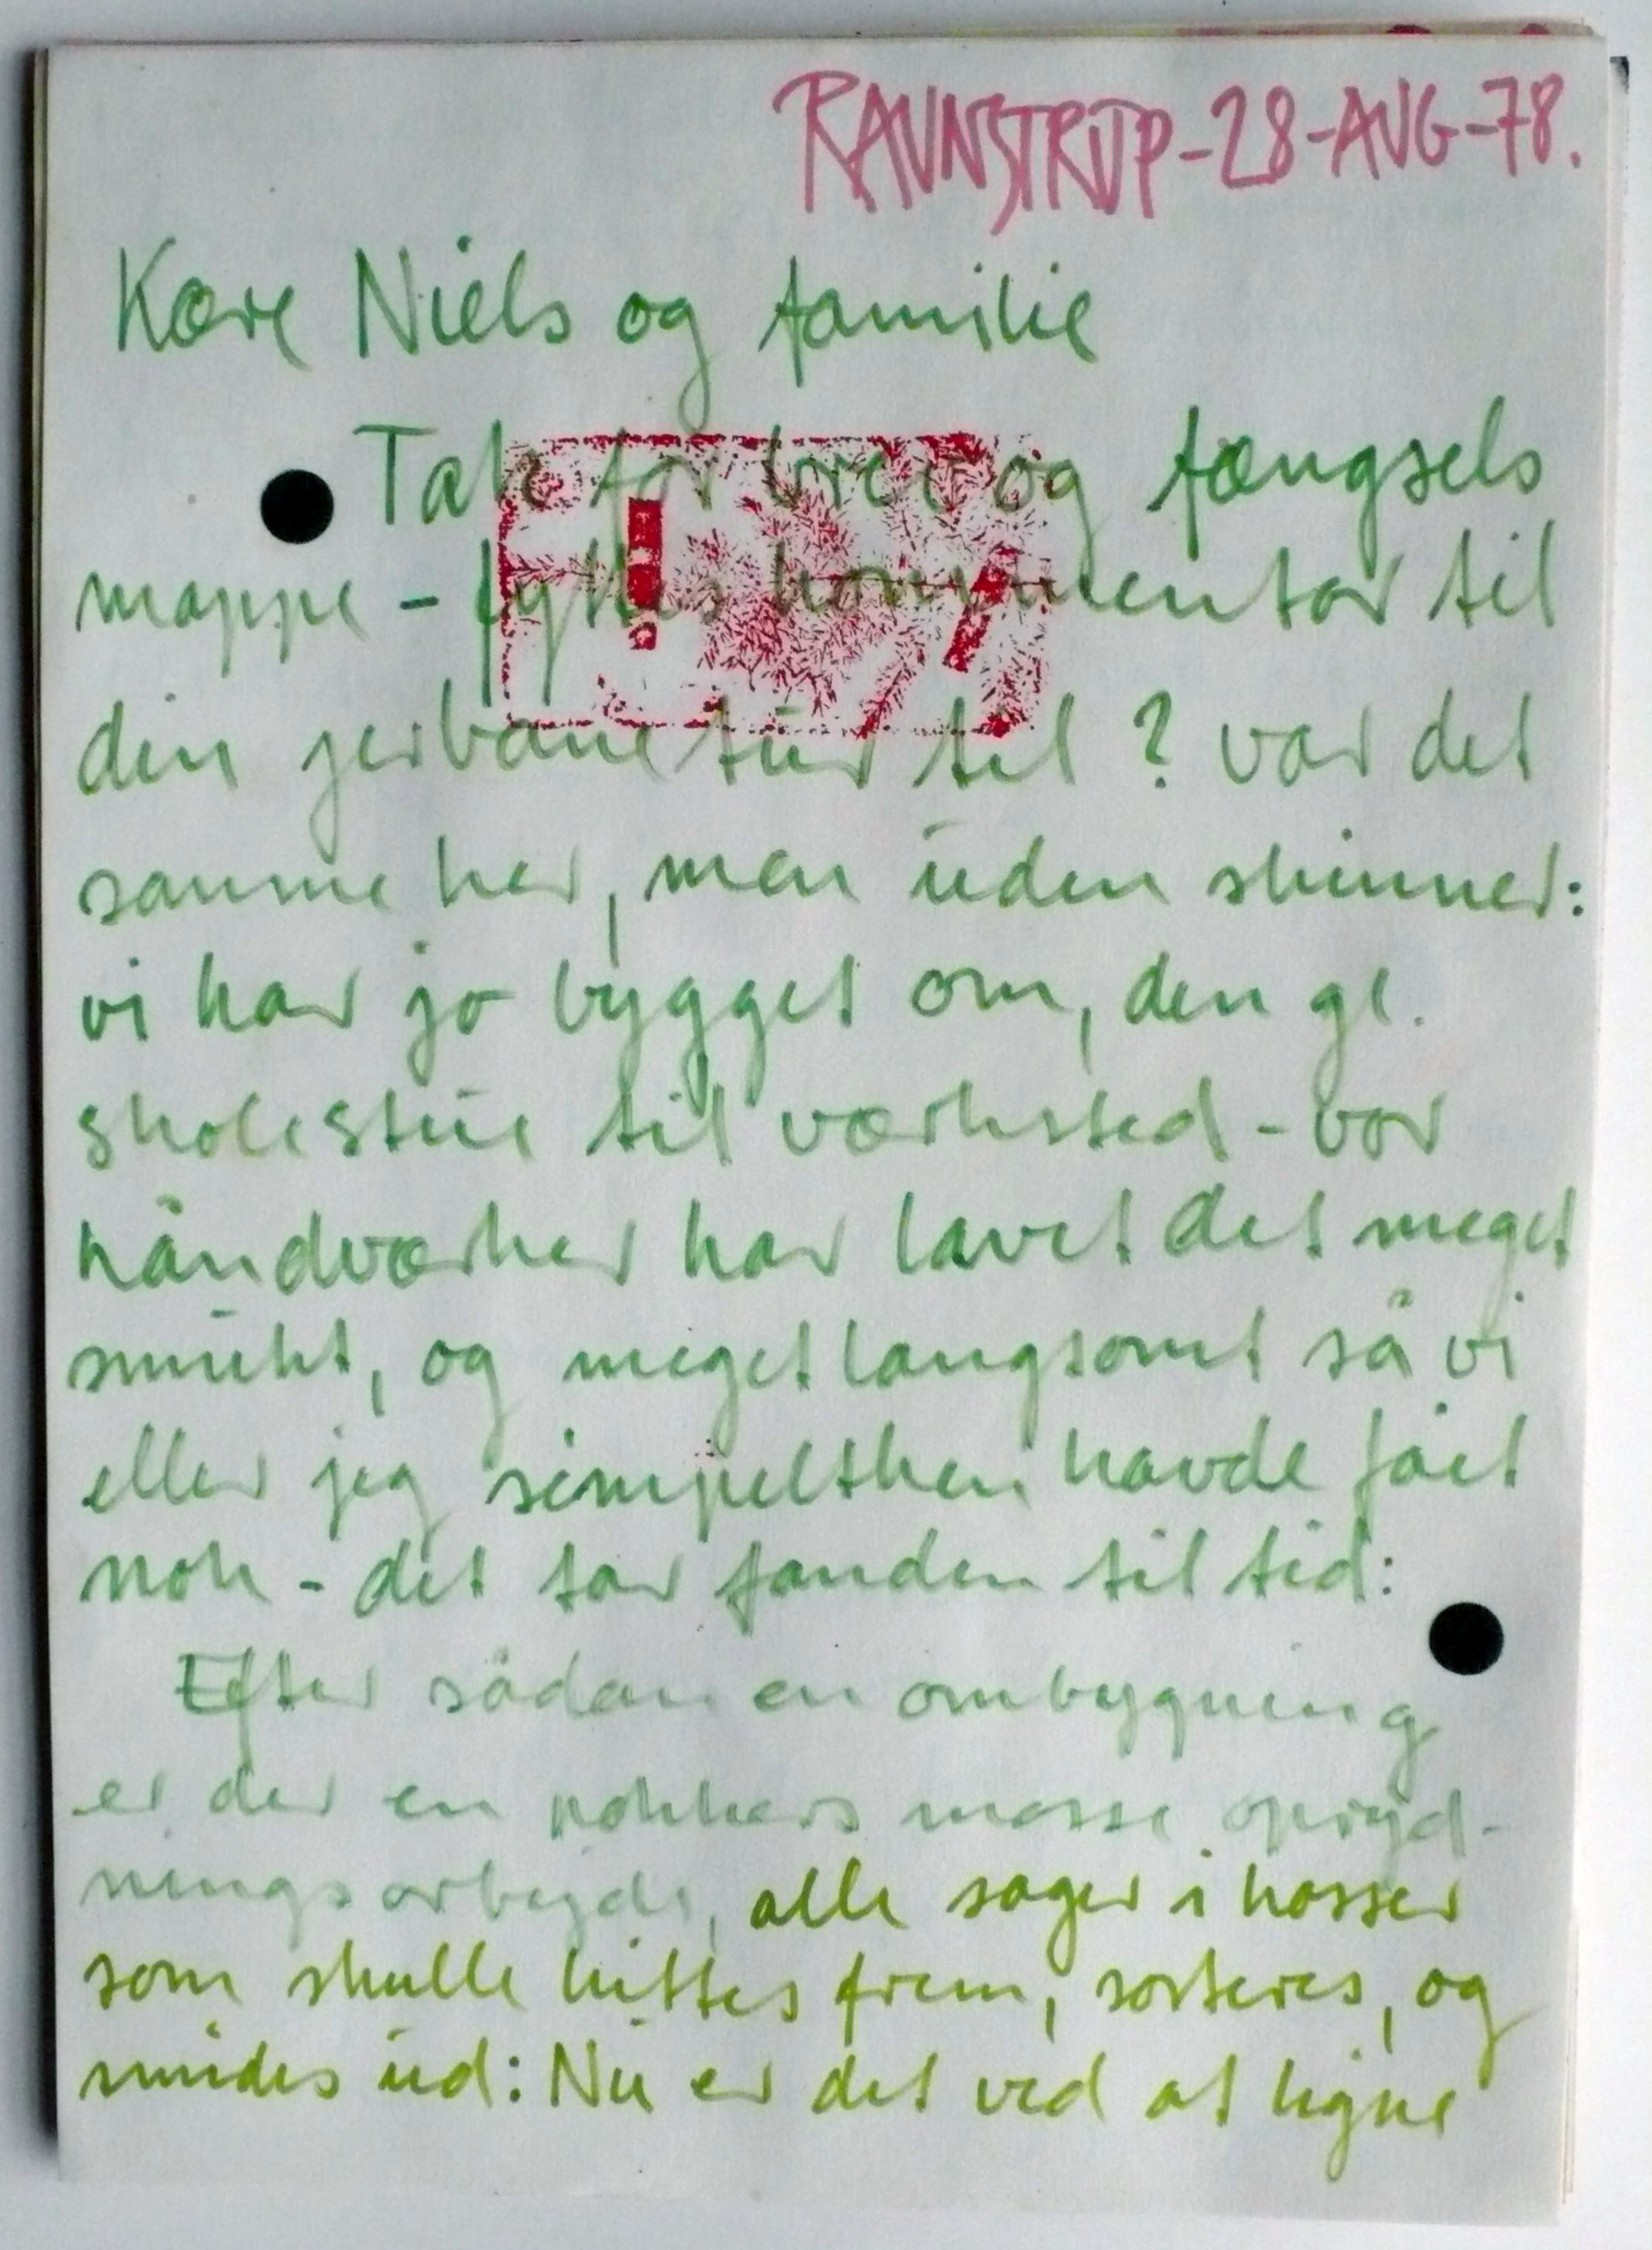 RAVNSTRUP-28-AUG-78.
Kære Niels og familie
Tak for brev og fængsels
mappe - fyttes kommentar til
din jerbane tur til ? var det
samme her, men uden skinner:
vi har jo bygget om, den gl.
skolestue til værksted - vor
håndværker har lavet det meget
smukt, og meget langsomt så vi
eller jeg simpelthen havde fået
nok - det tar fanden til tid:
Efter sådan en ombygning
er der en pokkers masse opryd-
ningsarbejde, alle sager i kasser
som skulle hittes frem, sorteres, og
smides ud: Nu er det ved at ligne